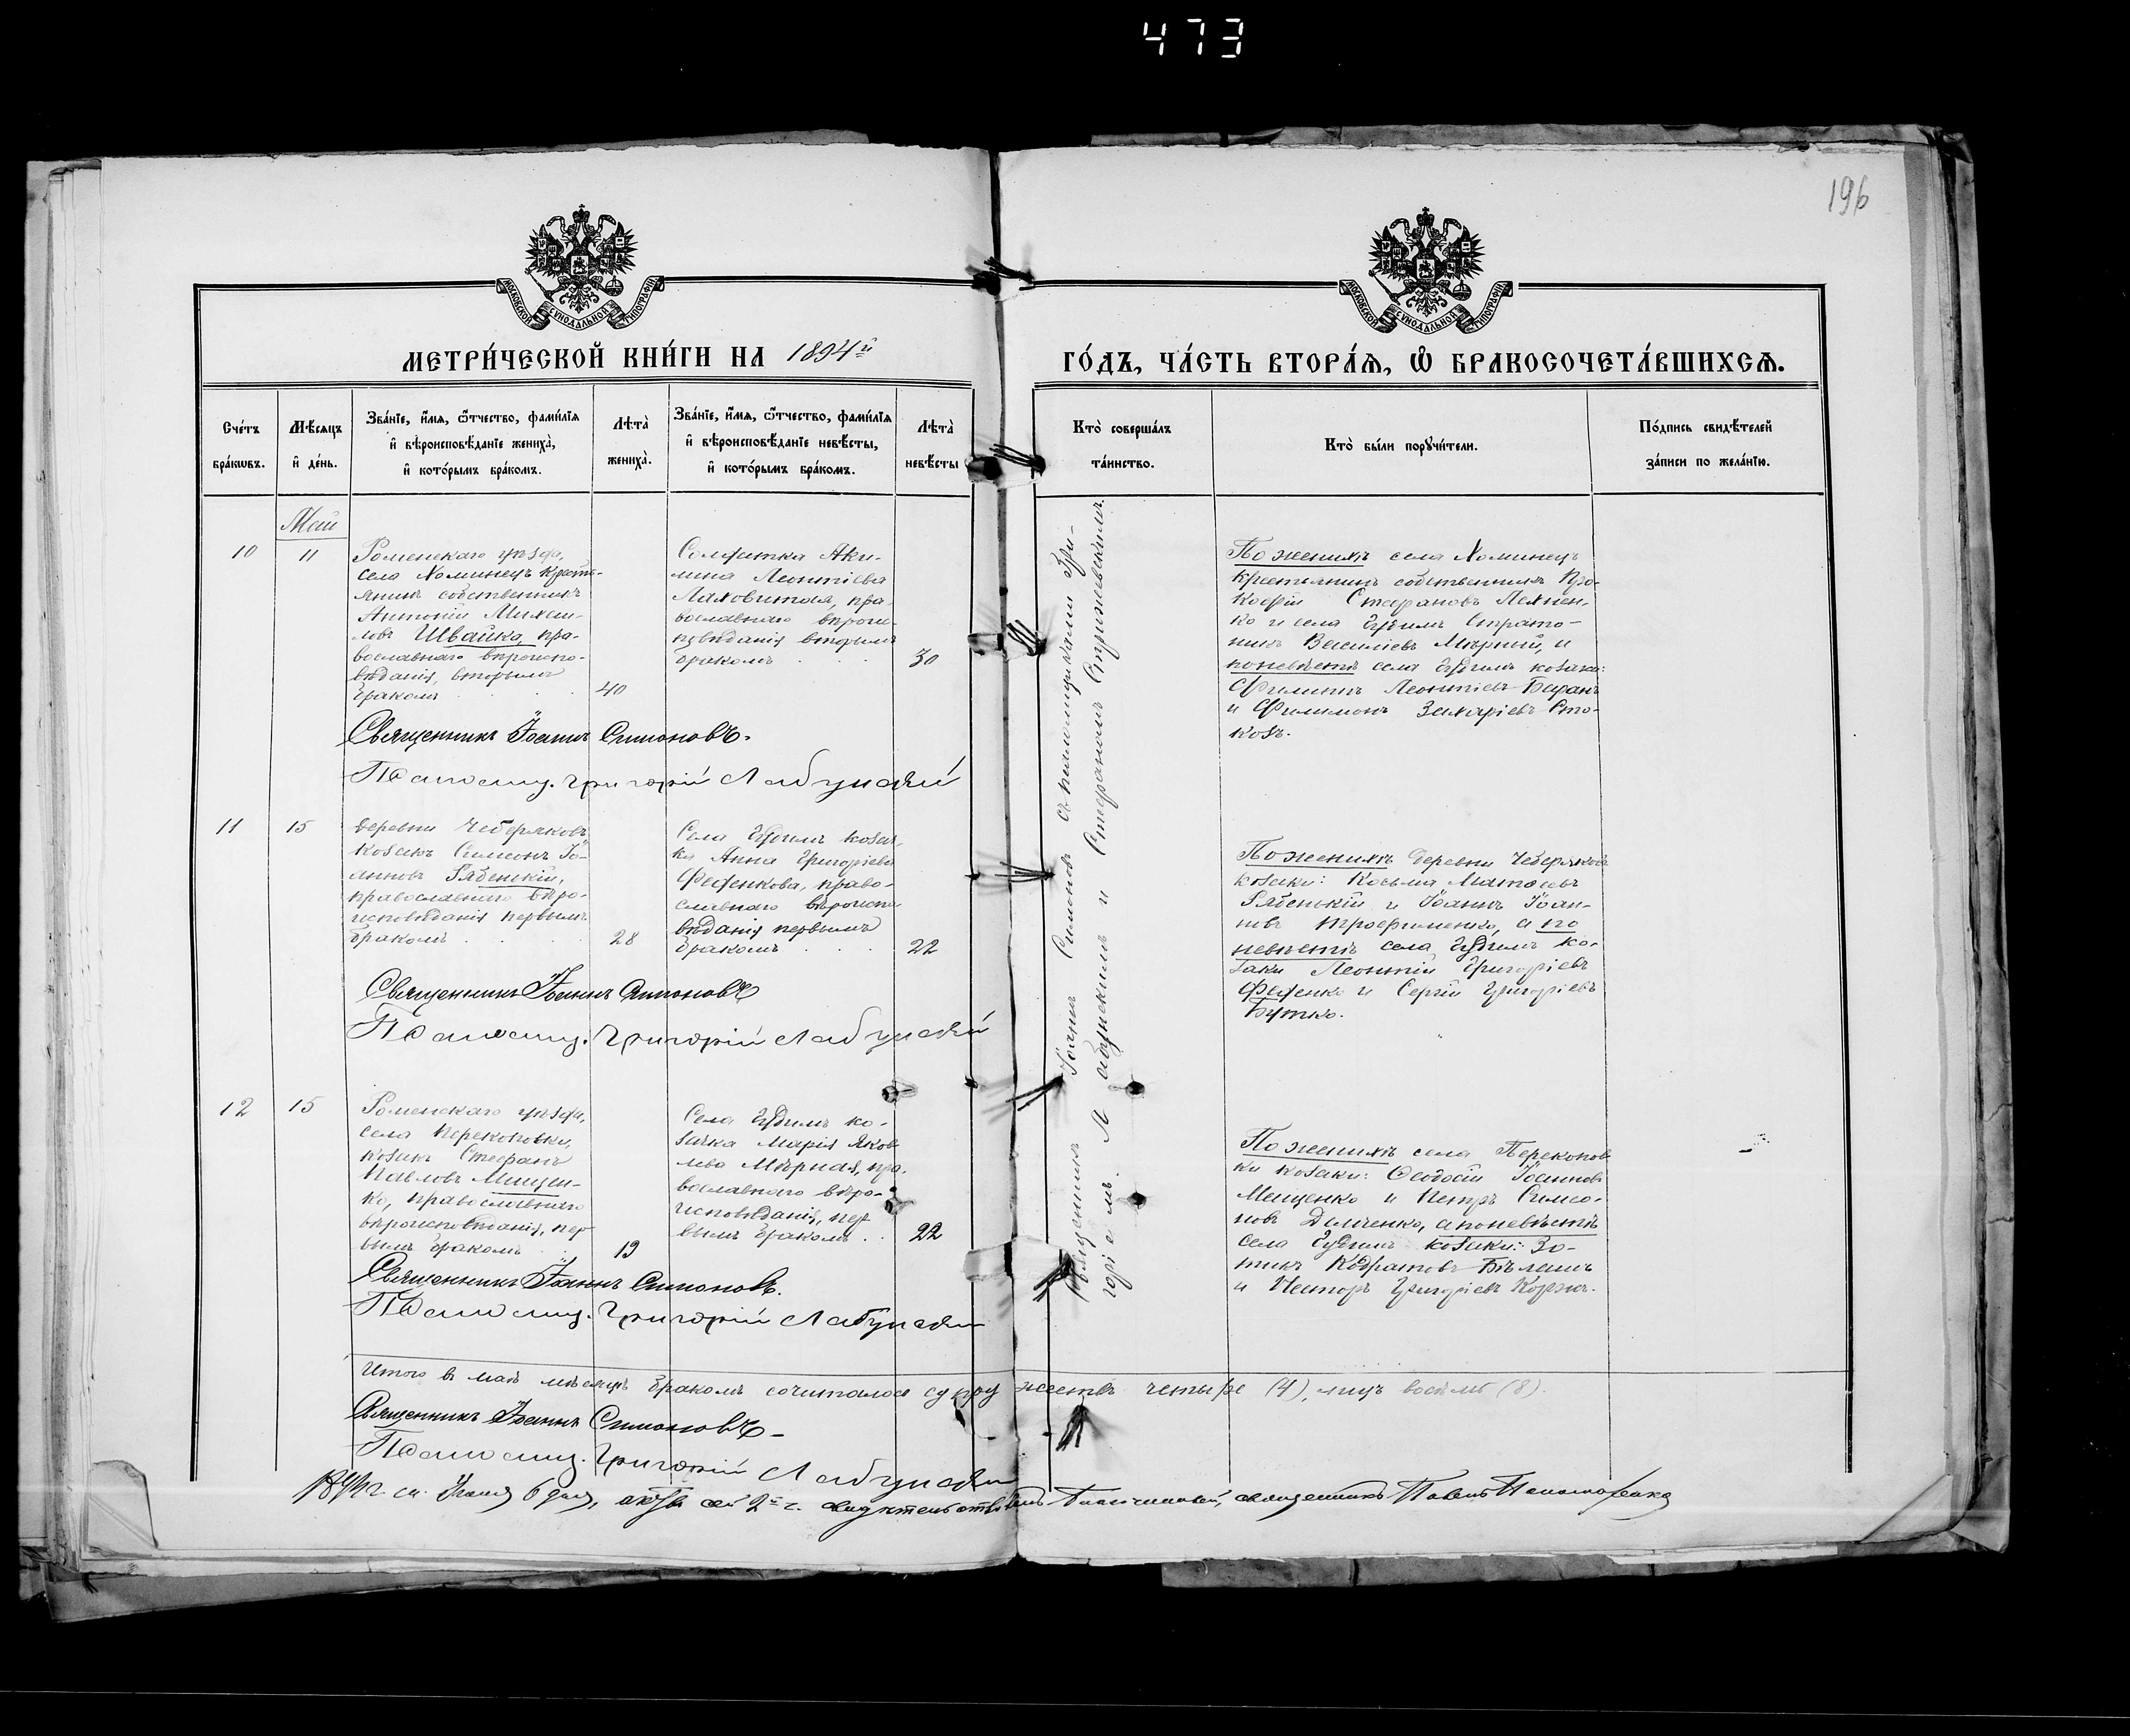 473
196
МОСКОВСКОЙ СѴНОДАЛЬНОЙ ТИПОГРАФІИ
МОСКОВСКОЙ СѴНОДАЛЬНОЙ ТИПОГРАФІИ
МЕТРИ́ЧЕСКОЙ КНИ́ГИ НА 1894й
ГО́ДЪ, ЧА́СТЬ ВТОРА́Ѧ, Ѿ БРАКОСОЧЕТА́ВШИХСѦ.
Сче́тъ
бра́кѡвъ.
Мѣ́сяцъ
и де́нь.
Зва́ніе, и́мя, ѻ́тчество, фами́лія
и вѣроисповѣ́даніе жениха̀,
и кото́рымъ бра́комъ.
Лѣта̀
жениха̀.
Зва́ніе, и́мя, ѻ́тчество, фами́лія
и вѣроисповѣ́даніе невѣ́сты,
и кото́рымъ бра́комъ.
Лѣта̀
невѣ́сты
Кто̀ соверша́лъ
та́инство.
Кто̀ бы́ли порꙋчи́тели.
По́дпись свидѣ́телей
за́писи по жела́нію.
Май
10
11
Роменскаго уѣзда,
села Хоминецъ кресть-
янинъ собственникъ
Антоній Михаи-
ловъ Швайко, пра-
вославнаго вѣроиспо-
вѣданія, вторымъ
бракомъ
40
Солдатка Аки-
лина Леонтіева
православнаго вѣроис-
повѣданія вторымъ
бракомъ
30
По женихѣ села Хоминецъ
крестьянинъ собственникъ Про-
кофій Стефановъ
ко и села Гудимъ Страто-
никъ Василіевъ Мѣрный, и
по невѣстѣ села Гудимъ козаки:
Филиппъ Леонтіевъ
и Филимонъ Захаріевъ Сто-
козъ.
Священникъ Іоаннъ Симоновъ.
Псаломщ. Григорій Лабунскій
11
15
Деревни Чеберяковъ
козакъ Симеонъ Іо-
анновъ Рябенькій,
православнаго вѣро-
исповѣданія первымъ
бракомъ
28
Села Гудимъ козач-
ка Анна Григоріева
Феденкова, право-
славнаго вѣроиспо
вѣданія первымъ
бракомъ
22
По женихѣ деревни Чеберяковъ
козаки: Косьма
Рябенькій и Іоаннъ Іоан-
новъ Трофименко, а по
невѣстѣ села Гудимъ ко-
заки Леонтій Григоріевъ
Феденко и Сергій Григоріевъ
Бутко.
Священникъ Іоаннъ Симоновъ
Псаломщ. Григорій Лабунскій
12
15
Роменскаго уѣзда,
села Перекоповки,
козакъ Стефанъ
Павловъ Мищен-
ко, православнаго
вѣроисповѣданія, пер
вымъ бракомъ
19
Села Гудимъ ко-
зачка Марія Яков
лева Мѣрная, пра-
вославнаго вѣро-
исповѣданія, пер
вымъ бракомъ
22
По женихѣ села Перекопов
ки козаки: Ѳеодосій Іоанновъ
Мищенко и Петръ Симео-
новъ Демченко, а по невѣстѣ
села Гудимъ козаки: Зо-
тикъ Кодратовъ
и Несторъ Григоріевъ Коржъ.
Священникъ Іоаннъ Симоновъ.
Псаломщ. Григорій Лабунскій
Священникъ Іоаннъ Симоновъ съ псаломщиками Гри-
горіемъ Лабунскимъ и Стефаномъ Стрижевскимъ.
Итого въ маѣ мѣсяцѣ бракомъ сочиталось супружествъ четыре (4), лицъ восемь (8).
Священникъ Іоаннъ Симоновъ
Псаломщ. Григорій Лабунскій
6 дня, сей 2й ч. свидѣтельствовалъ Благочинный, священникъ Павелъ Пономаренко